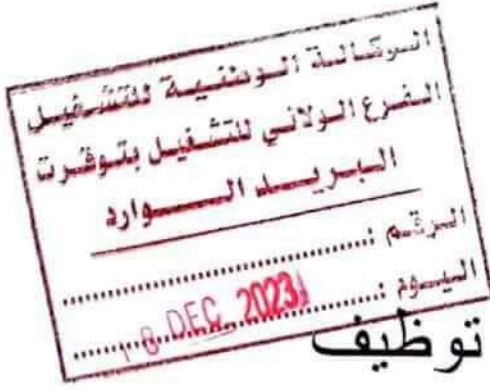 الوكالة الوطنية للتشغيل
الفرع الولائي للتشغيل بتوقرت
البريد الوارد
الرقم :
اليوم : 18 DEC 2023
توظيف